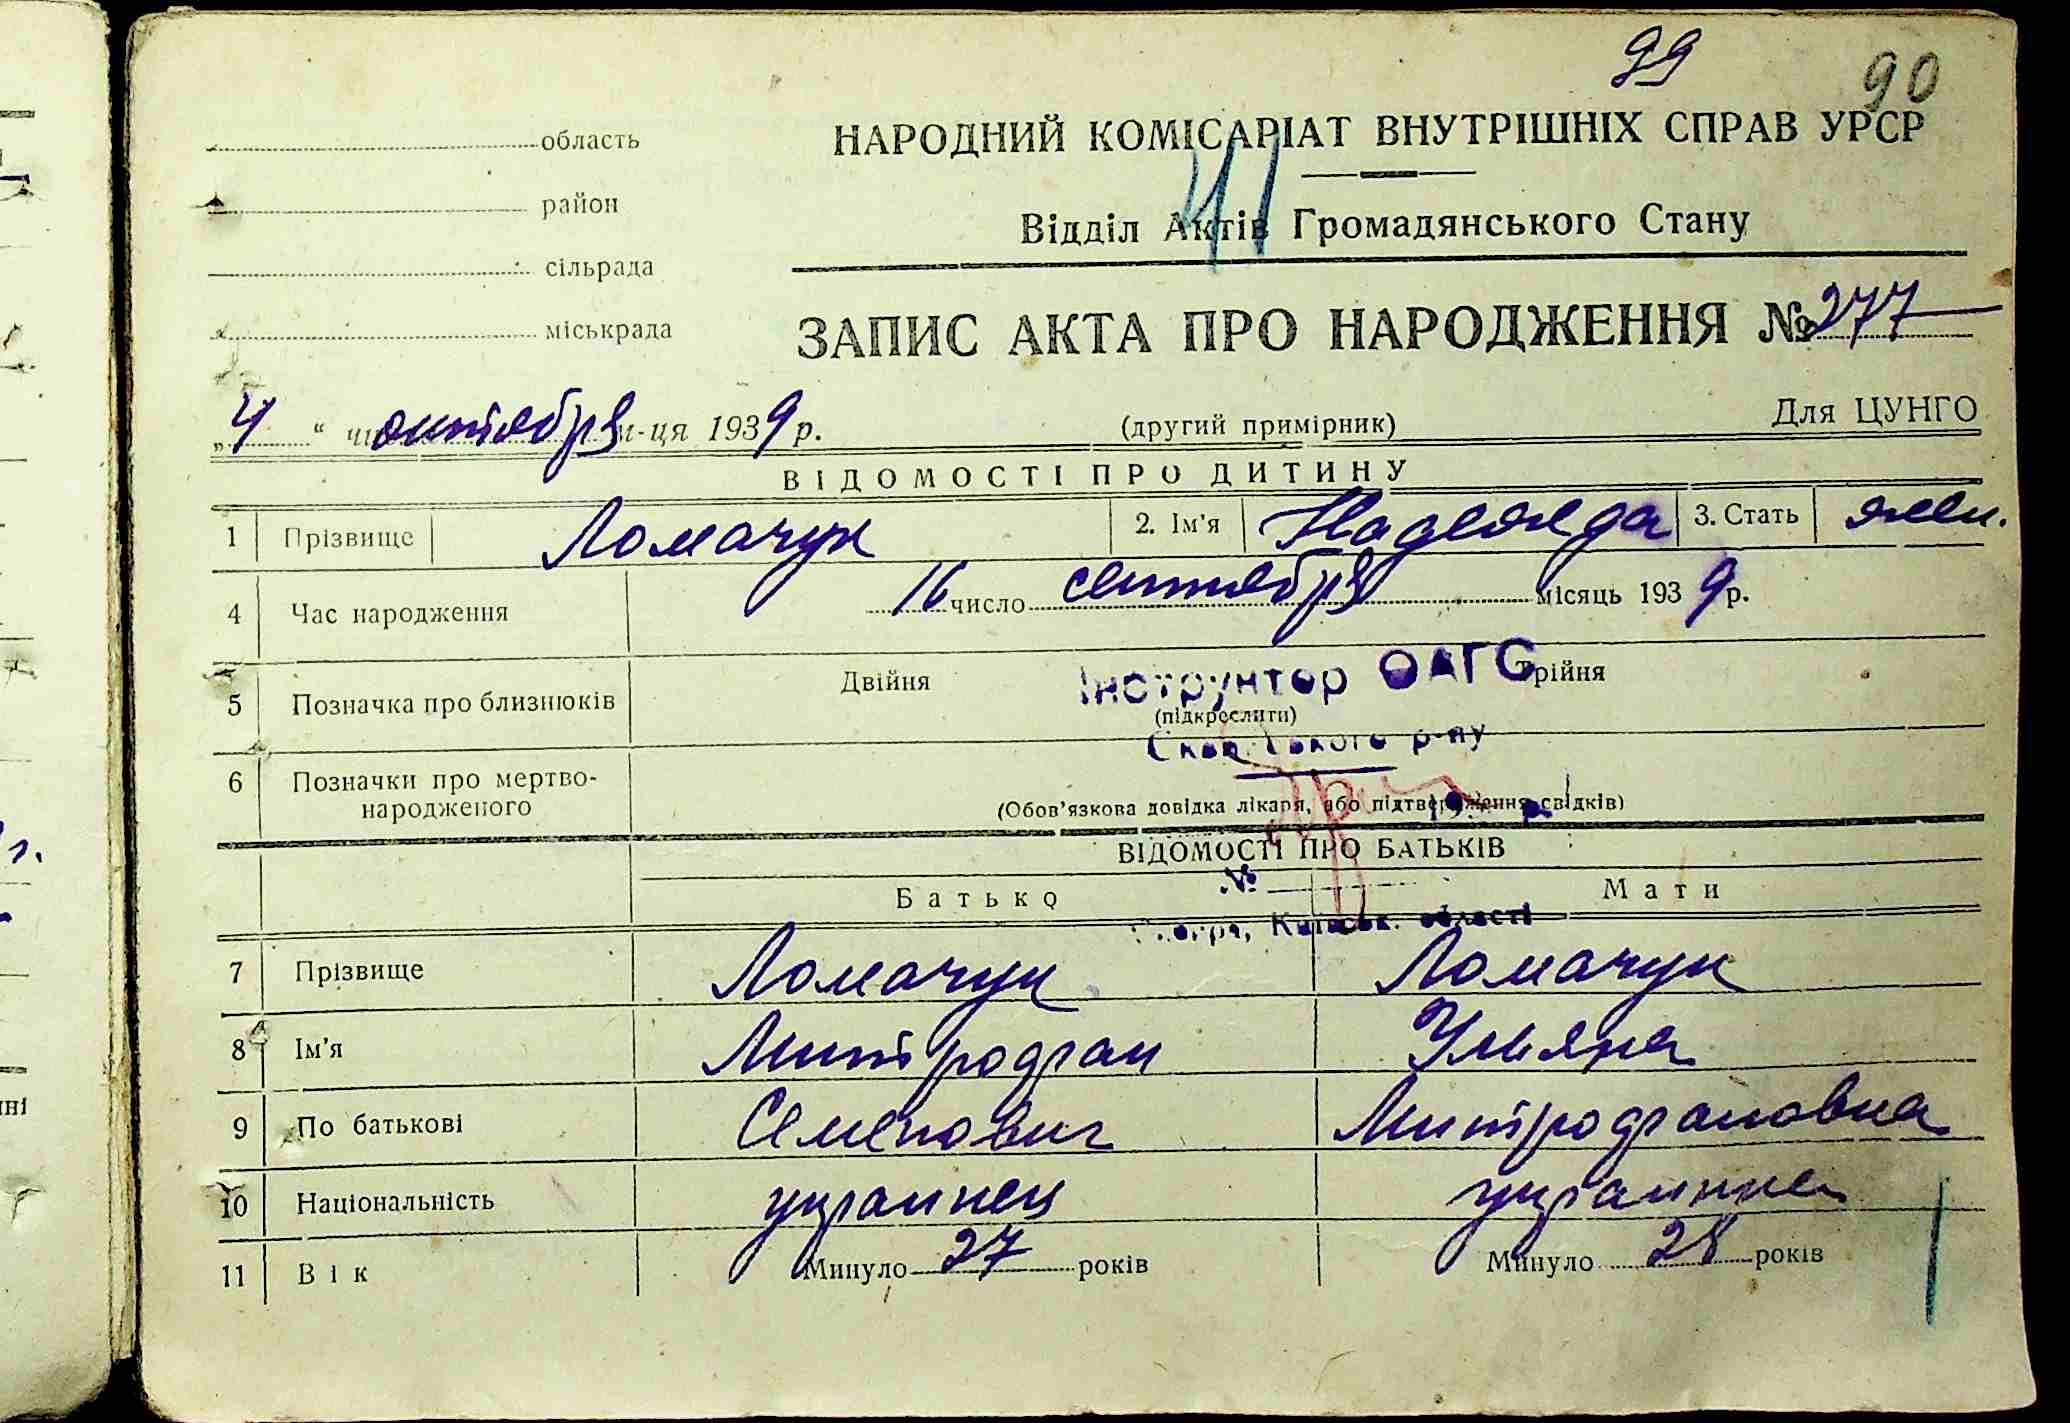 99 90
область
НАРОДНИЙ КОМІСАРІАТ ВНУТРІШНІХ СПРАВ УРСР
район
41
Відділ Актів Громадянського Стану
сільрада
міськрада
ЗАПИС АКТА ПРО НАРОДЖЕННЯ № 277
„4“ октября м-ця 1939 р.
(другий примірник)
Для ЦУНГО
ВІДОМОСТІ ПРО ДИТИНУ
1 Прізвище Ломачук 2. Ім'я Надежда 3. Стать жен.
4 Час народження 16 число сентября місяць 1939 р.
5 Позначка про близнюків Двійня Трійня
(підкреслити)
Інструктор ОАГС
р-ну
6 Позначки про мертвонародженого
(Обов'язкова довідка лікаря, або підтвердження свідків)
ВІДОМОСТІ ПРО БАТЬКІВ
№
Батько Мати
Київськ. області
7 Прізвище Ломачук Ломачук
8 Ім'я Митрофан Ульяна
9 По батькові Семенович Митрофановна
10 Національність украинец украинка
11 Вік Минуло 27 років Минуло 28 років